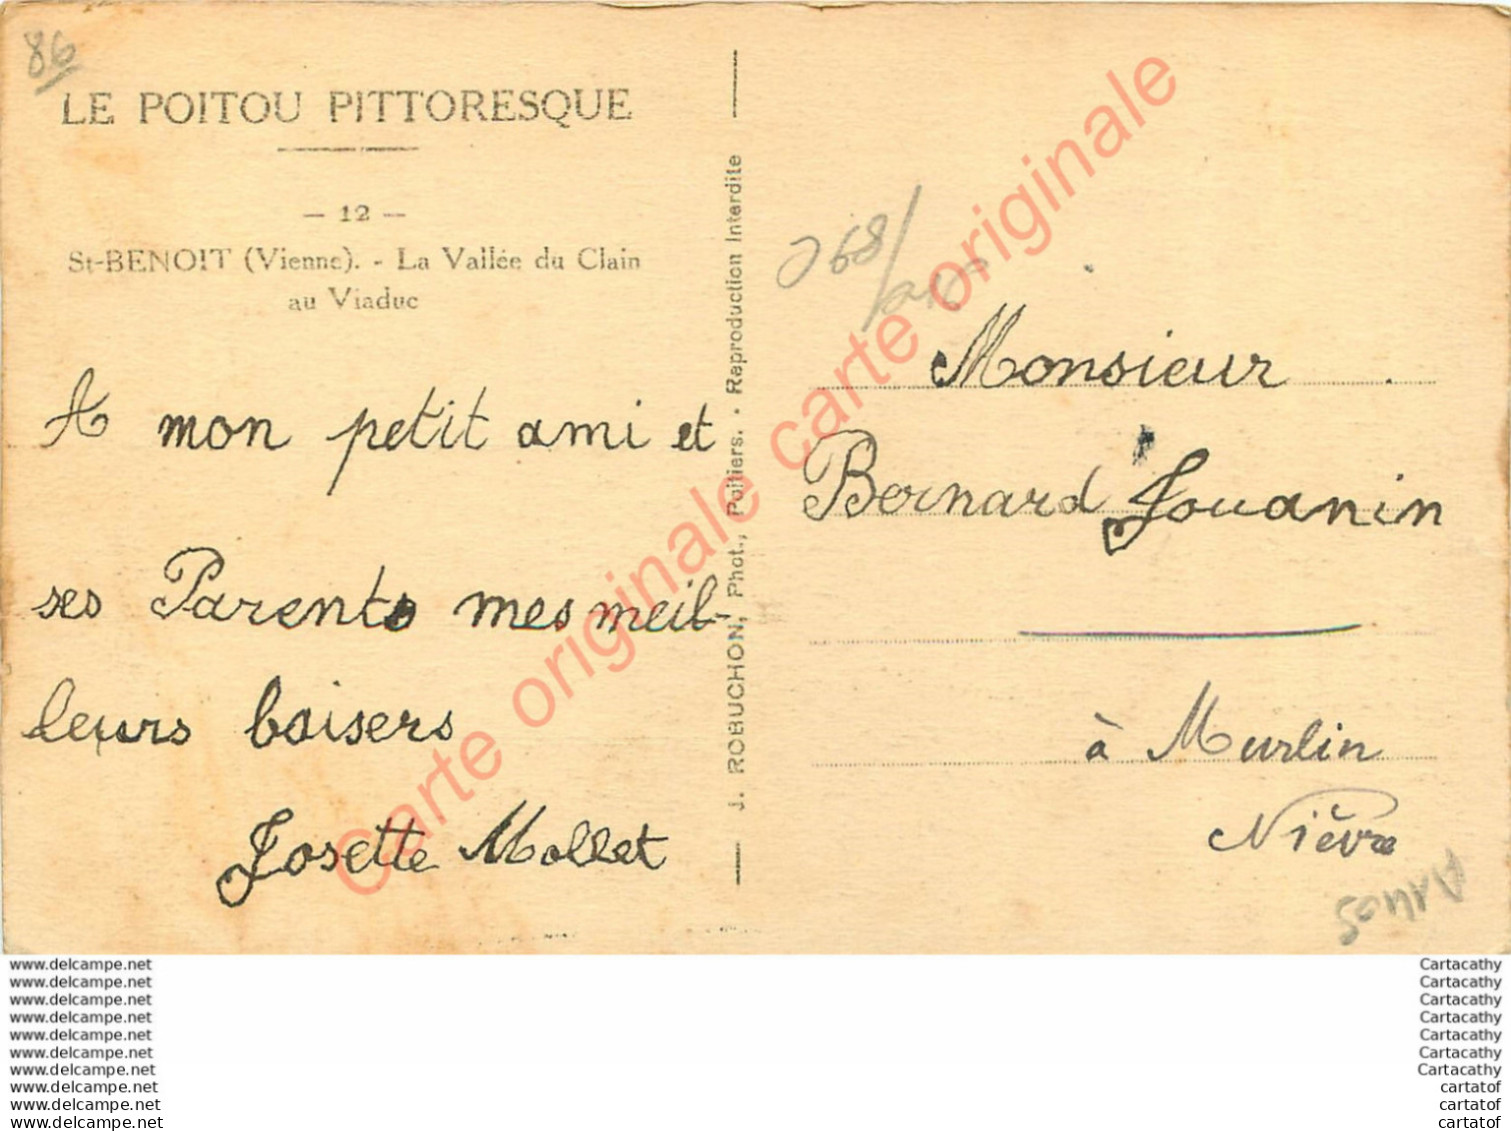 86
LE POITOU PITTORESQUE
— 12 —
St-BENOIT (Vienne). - La Vallée du Clain
au Viaduc
A mon petit ami et
ses Parents mes meil-
leurs baisers
Josette Mollet
J. ROBUCHON, Phot., Poitiers. - Reproduction Interdite
Carte originale carte originale
Monsieur
Bernard Jouanin
à Murlin
Nièvre
www.delcampe.net
www.delcampe.net
www.delcampe.net
www.delcampe.net
www.delcampe.net
www.delcampe.net
www.delcampe.net
www.delcampe.net
www.delcampe.net
www.delcampe.net
Cartacathy
Cartacathy
Cartacathy
Cartacathy
Cartacathy
Cartacathy
Cartacathy
cartatof
cartatof
cartatof